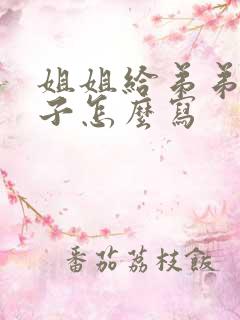 姐姐給弟弟
子怎麼寫
番茄荔枝飯